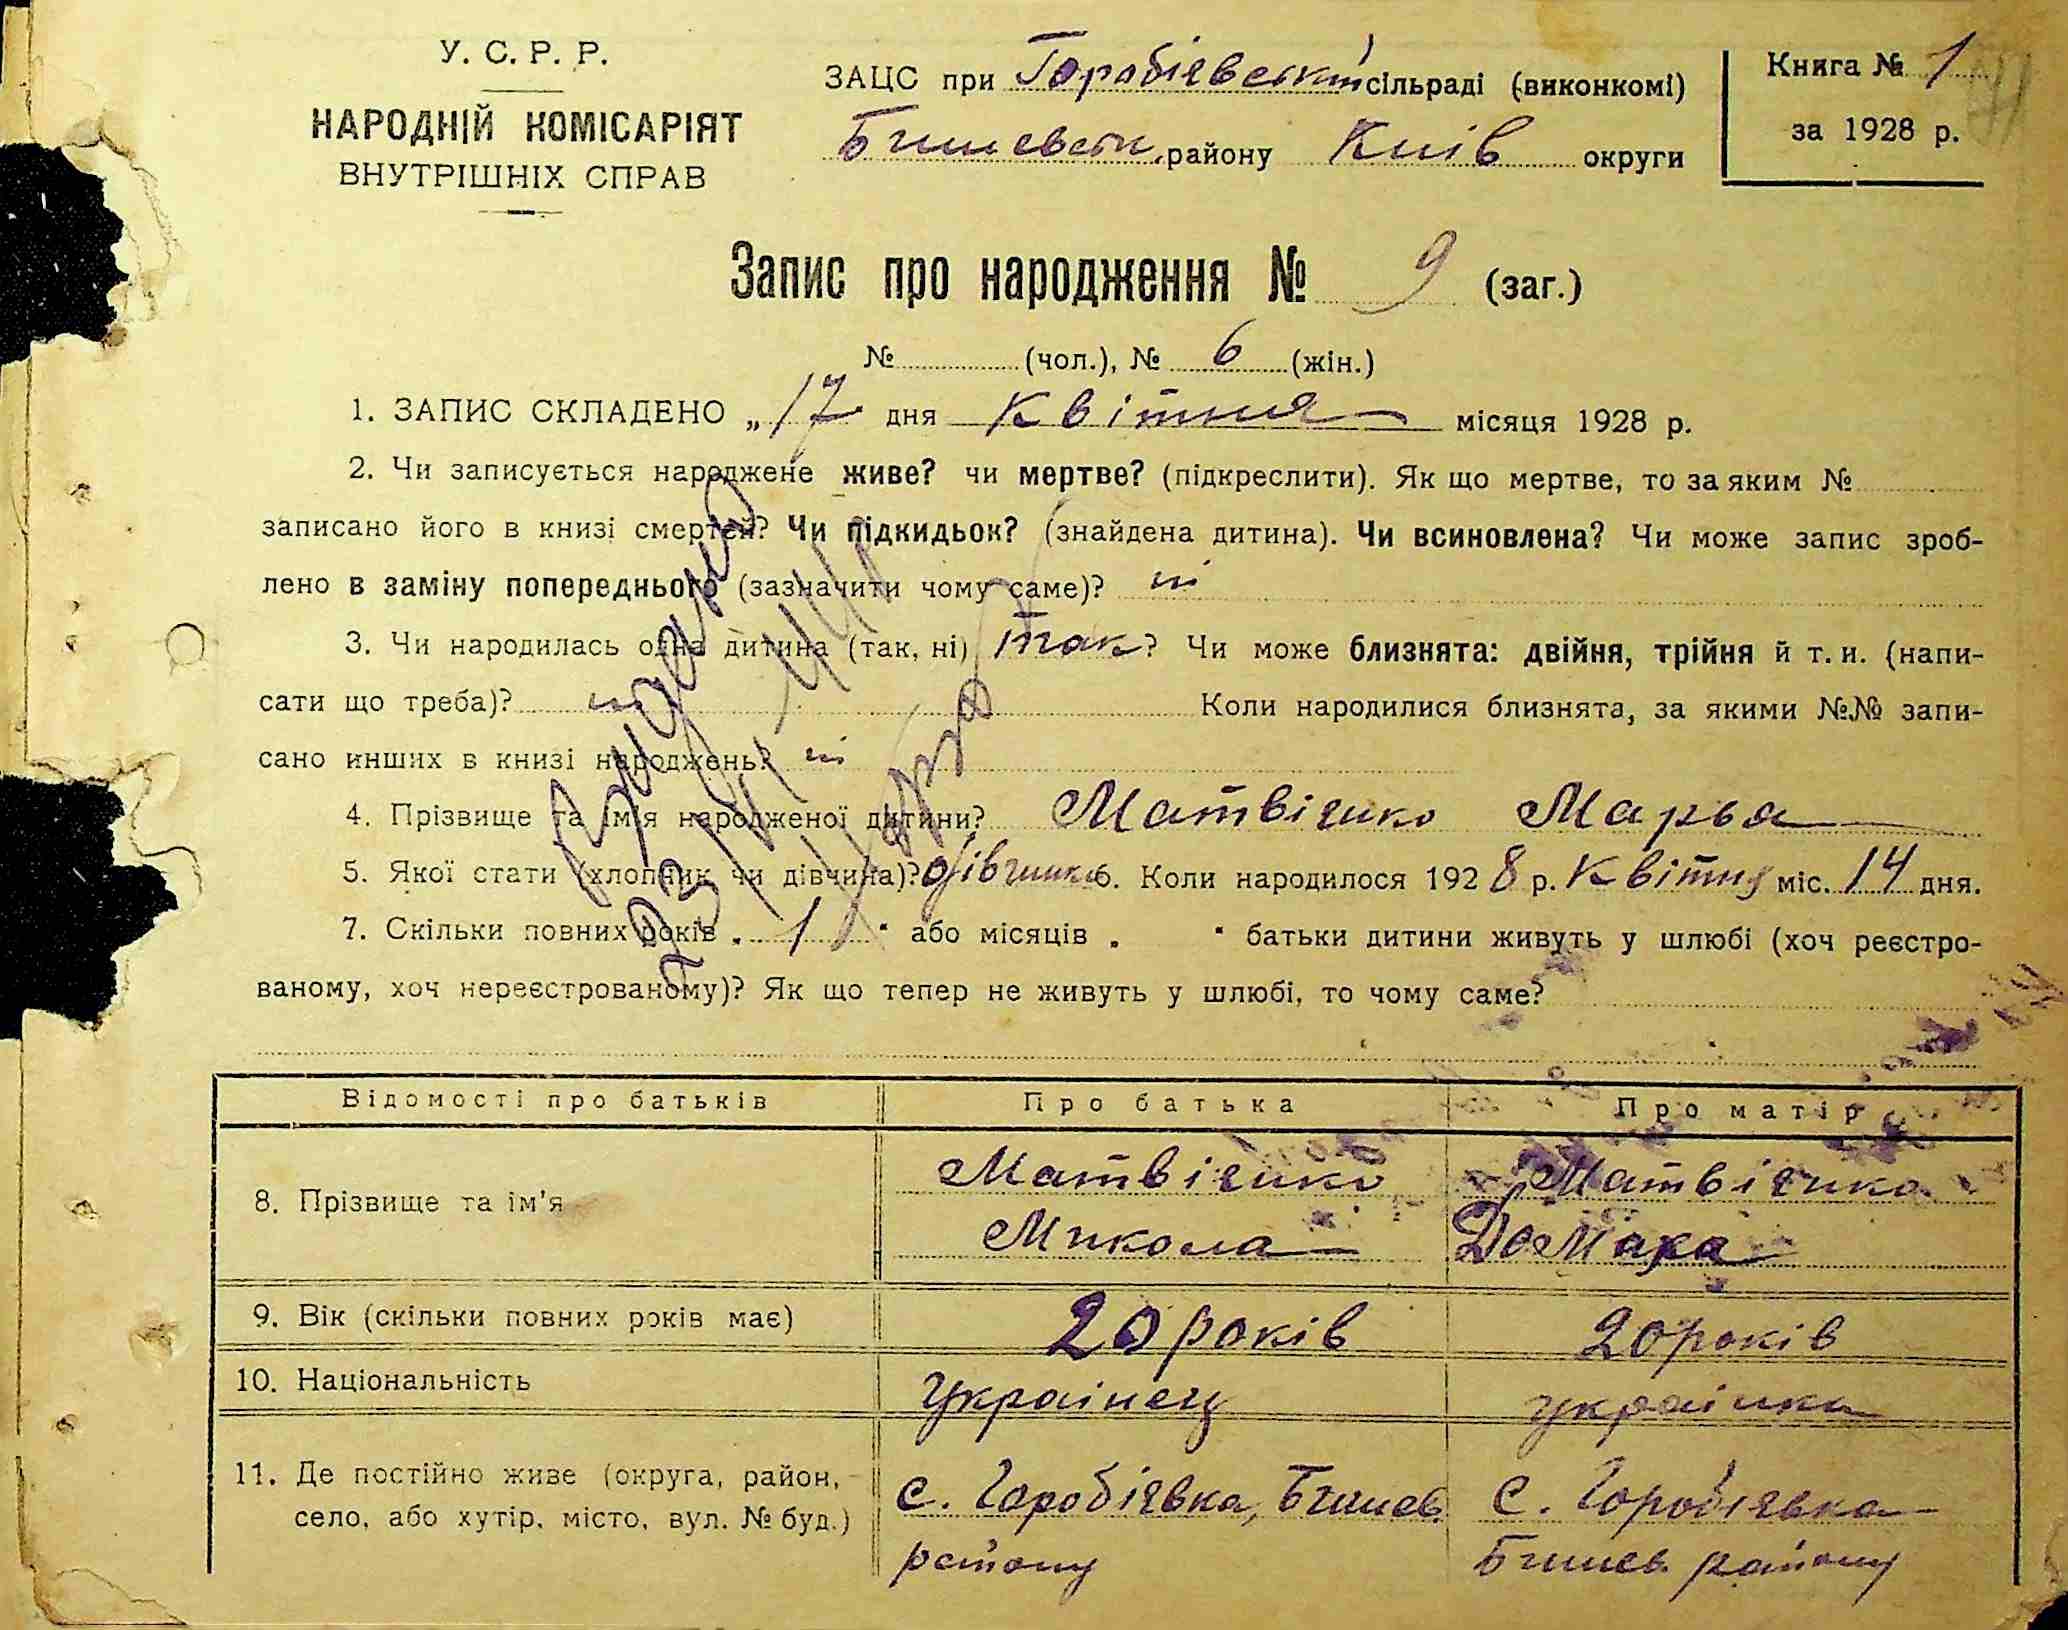 У. С. Р. Р.
НАРОДНІЙ КОМІСАРІЯТ
ВНУТРІШНІХ СПРАВ
ЗАЦС при Горобіївській сільраді (виконкомі)
Бишевськ. району Київ округи
Книга № 1
за 1928 р.
Запис про народження № 9 (заг.)
№ (чол.), № 6 (жін.)
1. ЗАПИС СКЛАДЕНО „17 дня Квітня місяця 1928 р.
2. Чи записується народжене живе? чи мертве? (підкреслити). Як що мертве, то за яким №
записано його в книзі смертей? Чи підкидьок? (знайдена дитина). Чи всиновлена? Чи може запис зроб-
лено в заміну попереднього (зазначити чому саме)? ні
3. Чи народилась одна дитина (так, ні) так? Чи може близнята: двійня, трійня й т. и. (напи-
сати що треба)? ні Коли народилися близнята, за якими №№ запи-
сано инших в книзі народжень? ні
4. Прізвище та ім'я народженої дитини? Матвієнко Марья
5. Якої стати (хлопчик чи дівчина)? дівчинка 6. Коли народилося 1928 р. Квітня міс. 14 дня.
7. Скільки повних років „ 1 " або місяців „ " батьки дитини живуть у шлюбі (хоч реєстро-
ваному, хоч нереєстрованому)? Як що тепер не живуть у шлюбі, то чому саме?
Відомості про батьків Про батька Про матір
8. Прізвище та ім'я Матвієнко Микола Матвієнко Домаха
9. Вік (скільки повних років має) 20 років 20 років
10. Національність Українець українка
11. Де постійно живе (округа, район, село, або хутір, місто, вул. № буд.) с. Горобіївка, Бишев. району с. Горобіївка Бишев. району